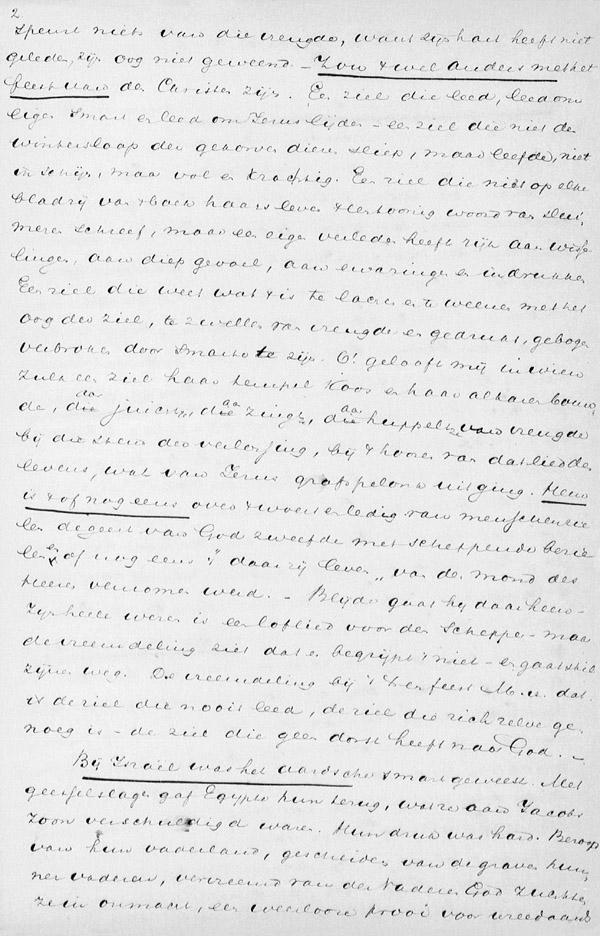 2
speurt niets van die vreugde, want zijn hart heeft niet
geleden, zijn oog niet geweend. - Zou 't wel anders met het
feest van den Christen zijn. Een ziel die leed, leed om
eigen smart en leed om Jezus lijden - een ziel die niet de
winterslaap der dieren sliep, maar leefde, niet
in schijn, maar vol en krachtig. Een ziel die niet op elke
bladzij van 't boek haars levens woord van slui-
meren schreef, maar een eigen verleden heeft rijk aan wisse-
lingen, aan diep gevoel, aan ervaringen en indrukken
Een ziel die weet wat 't is te lachen en te weenen met het
oog der ziel, te zwellen van vreugde en gedrukt, gebogen
verbroken door smarte te zijn. O! gelooft mij in wien
zulk een ziel haar tempel koos en haar altaar bouw-
de, daar juicht ze, daar zingt ze, daar huppelt ze van vreugde
bij die stem der verlossing, bij 't hooren van dat lied des
levens, wat van Jezus grafspelonk uitging. Hem
is 't of nog eens over 't woest en ledig van menschenzie-
len de geest van God zweefde met scheppende bezie-
ling of nog eens "daar zij leven" van den mond des
Heeren vernomen werd. - Blijde gaat hij daar heen -
Zijn heele wezen is een loflied voor den Schepper - maar
de vreemdeling ziet dat en begrijpt 't niet - en gaat stil
zijnen weg. De vreemdeling bij 't feest M. u. dat
is de ziel die nooit leed, de ziel die zich zelve ge-
noeg is - de ziel die geen dorst heeft naar God. -
Bij Israël was het aardsche smart geweest. Met
geeselslagen gaf Egypte hun terug, wat ze aan Jacobs
Zoon verschuldigd waren. Hun druk was hard. Beroofd
van hun vaderland, gescheiden van de graven hun-
ner vaderen, vervreemd van der Vaderen God zuchtten
ze in onmacht, een weerlooze prooi voor wreedaards